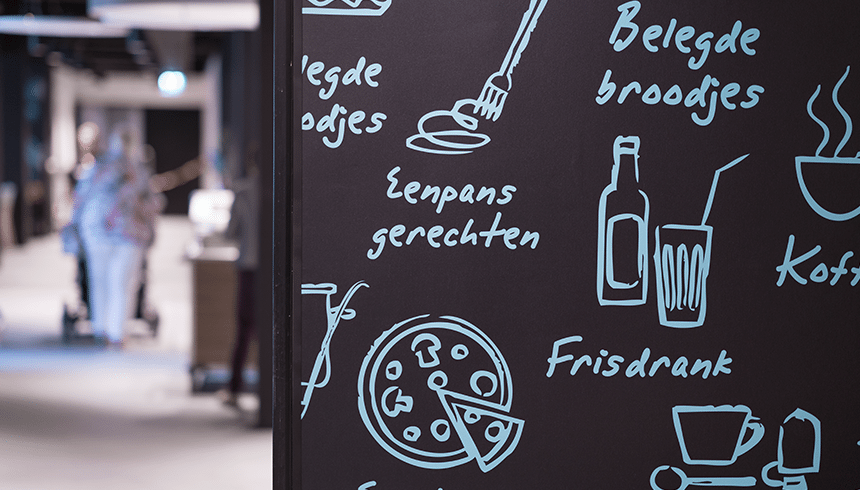 Belegde
broodjes
legde
odjes
Eenpans
gerechten
Koff
Frisdrank